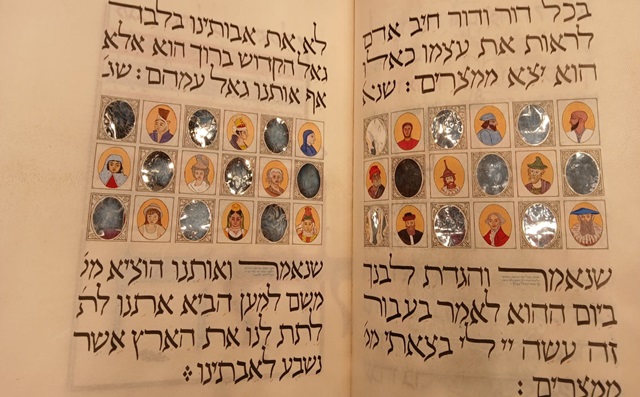 בכל דור ודור חיב אדם
לראות את עצמו כאל
הוא יצא ממצרים : שנא
שנאמר והגדת לבנך
ביום ההוא לאמר בעבור
זה עשה יי לי בצאתי ממ
ממצרים :
לא את אבותינו בלבד
גאל הקדוש ברוך הוא אלא
אף אותנו גאל עמהם : שנ
שנאמר ואותנו הוציא מש
משם למען הביא אתנו לת
לתת לנו את הארץ אשר
נשבע לאבתינו